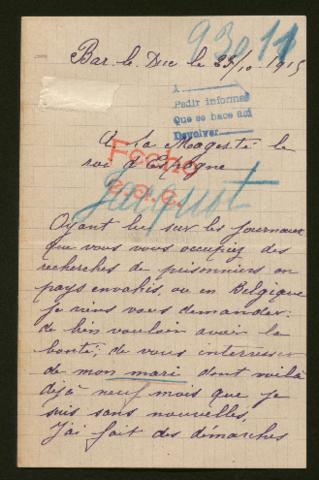 93011
Bar-le-Duc le 25/10 1915
A
Pedir informes
Que se hace así
Devolver
A La Magesté le
roi d'Espagne
Fecho
Jacquot
Ayant lu sur les Journaux
que vous vous occupiez des
recherches de prisonniers en
pays envahis, ou en Belgique
je viens vous demander
de bien vouloir avoir la
bonté, de vous interresser
de mon mari dont voilà
déjà neuf mois que je
suis sans nouvelles,
J'ai fait des démarches